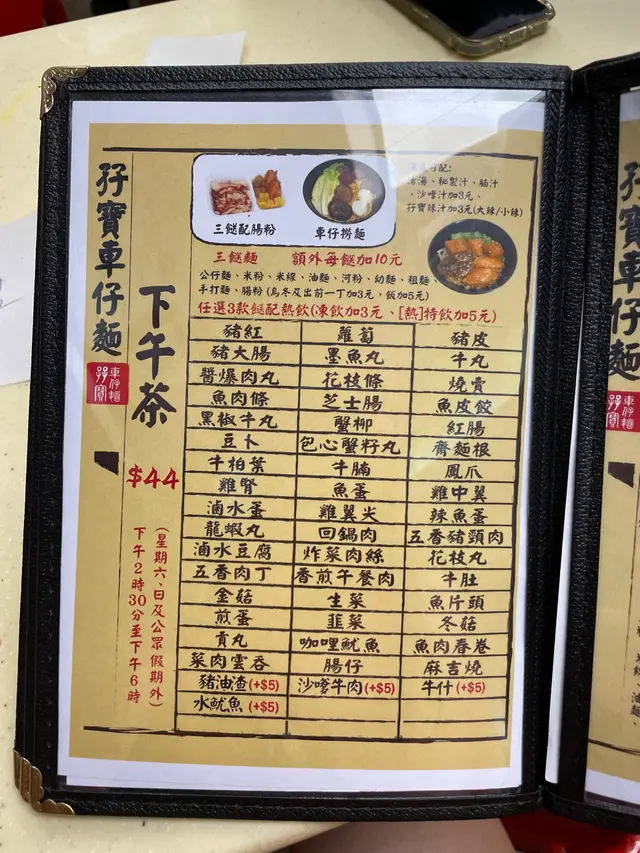 孖寶車仔麵
車仔麵
孖寶
下午茶
$44
(星期六、日及公眾假期外)
下午2時30分至下午6時
三餸配腸粉
車仔撈麵
配:
湯、秘製汁、腩汁
、沙嗲汁加3元、
孖寶辣汁加3元(大辣/小辣)
三餸麵 額外每餸加10元
公仔麵、米粉、米線、油麵、河粉、幼麵、粗麵、
手打麵、腸粉(烏冬及出前一丁加3元，飯加5元)
任選3款餸配熱飲(凍飲加3元、[熱]特飲加5元)
豬紅 蘿蔔 豬皮
豬大腸 墨魚丸 牛丸
醬爆肉丸 花枝條 燒賣
魚肉條 芝士腸 魚皮餃
黑椒牛丸 蟹柳 紅腸
豆卜 包心蟹籽丸 齋麵根
牛柏葉 牛腩 鳳爪
雞腎 魚蛋 雞中翼
滷水蛋 雞翼尖 辣魚蛋
龍蝦丸 回鍋肉 五香豬頸肉
滷水豆腐 炸菜肉絲 花枝丸
五香肉丁 香煎午餐肉 牛肚
金菇 生菜 魚片頭
煎蛋 韮菜 冬菇
貢丸 咖哩魷魚 魚肉春卷
菜肉雲吞 腸仔 麻吉燒
豬油渣(+$5) 沙嗲牛肉(+$5) 牛什(+$5)
水魷魚(+$5)
孖寶車仔麵
車仔麵
孖寶